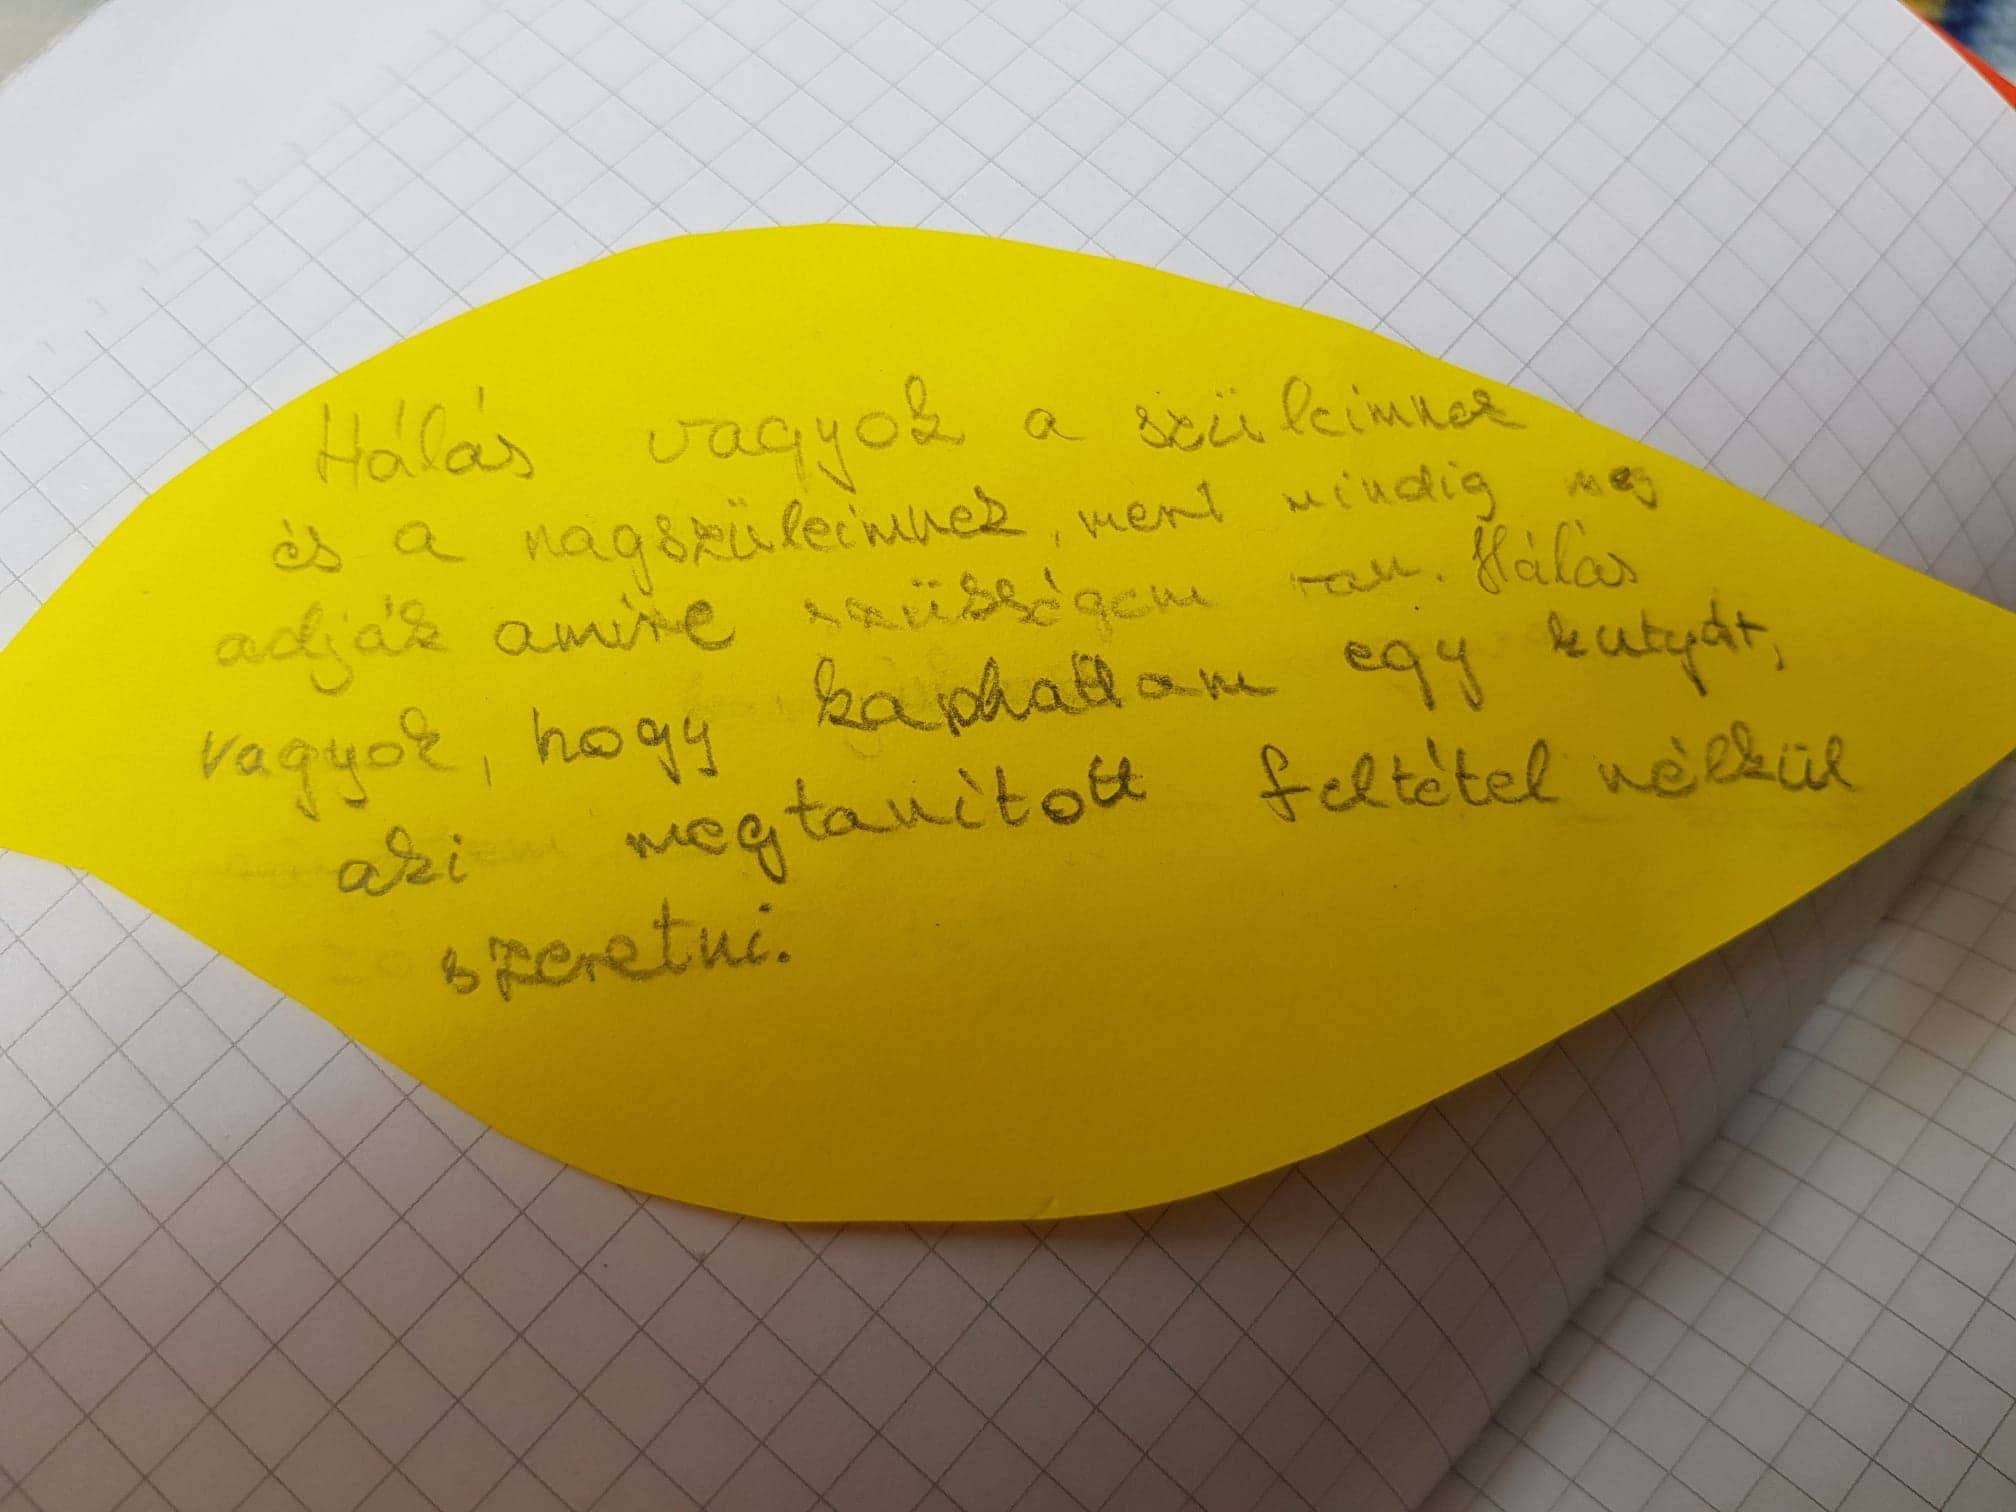 Hálás vagyok a szüleimnek
és a nagszüleimnek, mert mindig meg
adják amire szükségem van. Hálás
vagyok, hogy kaphattam egy kutyát,
aki megtanított feltétel nélkül
szeretni.